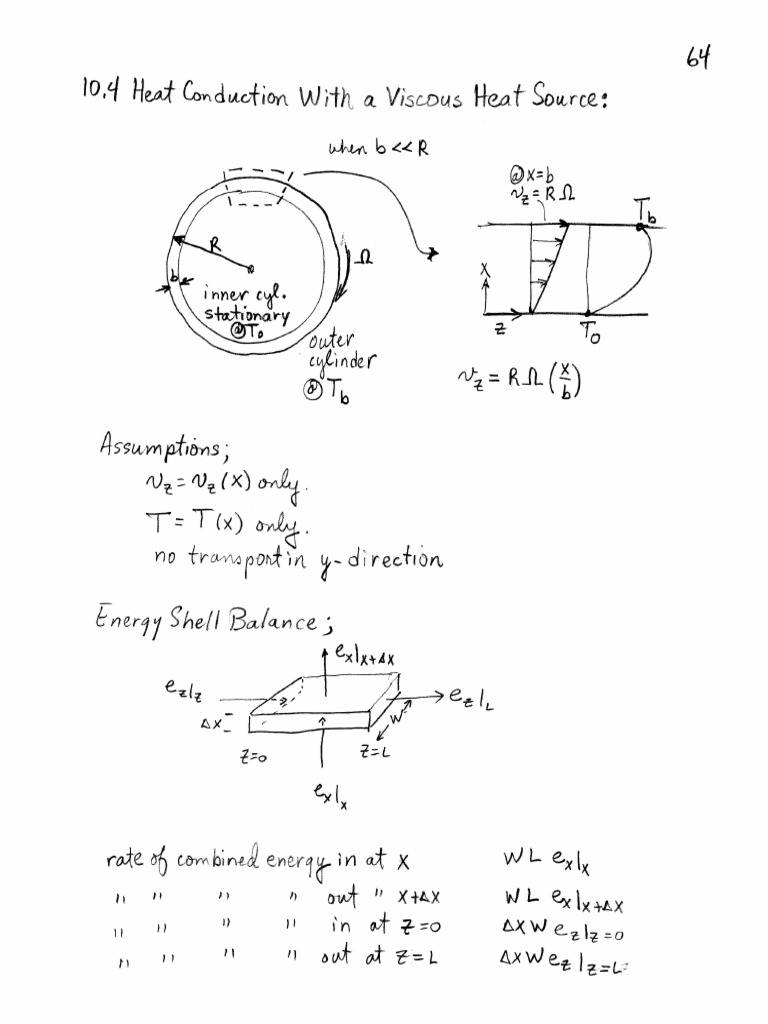 64
10.4 Heat Conduction With a Viscous Heat Source:
when b << R
@ x=b
v_z = RΩ
T_b
R
Ω
b
inner cyl.
stationary
@ T_0
x
z
T_0
outer
cylinder
@ T_b
v_z = RΩ (x/b)
Assumptions;
v_z = v_z (x) only.
T = T(x) only.
no transport in y-direction
Energy Shell Balance;
e_x|_x+Δx
e_z|_z
e_z|_L
Δx
W
z=0
z=L
e_x|_x
rate of combined energy in at x WL e_x|_x
" " " " out " x+Δx WL e_x|_x+Δx
" " " " in at z=0 ΔxW e_z|_z=0
" " " " out at z=L ΔxW e_z|_z=L